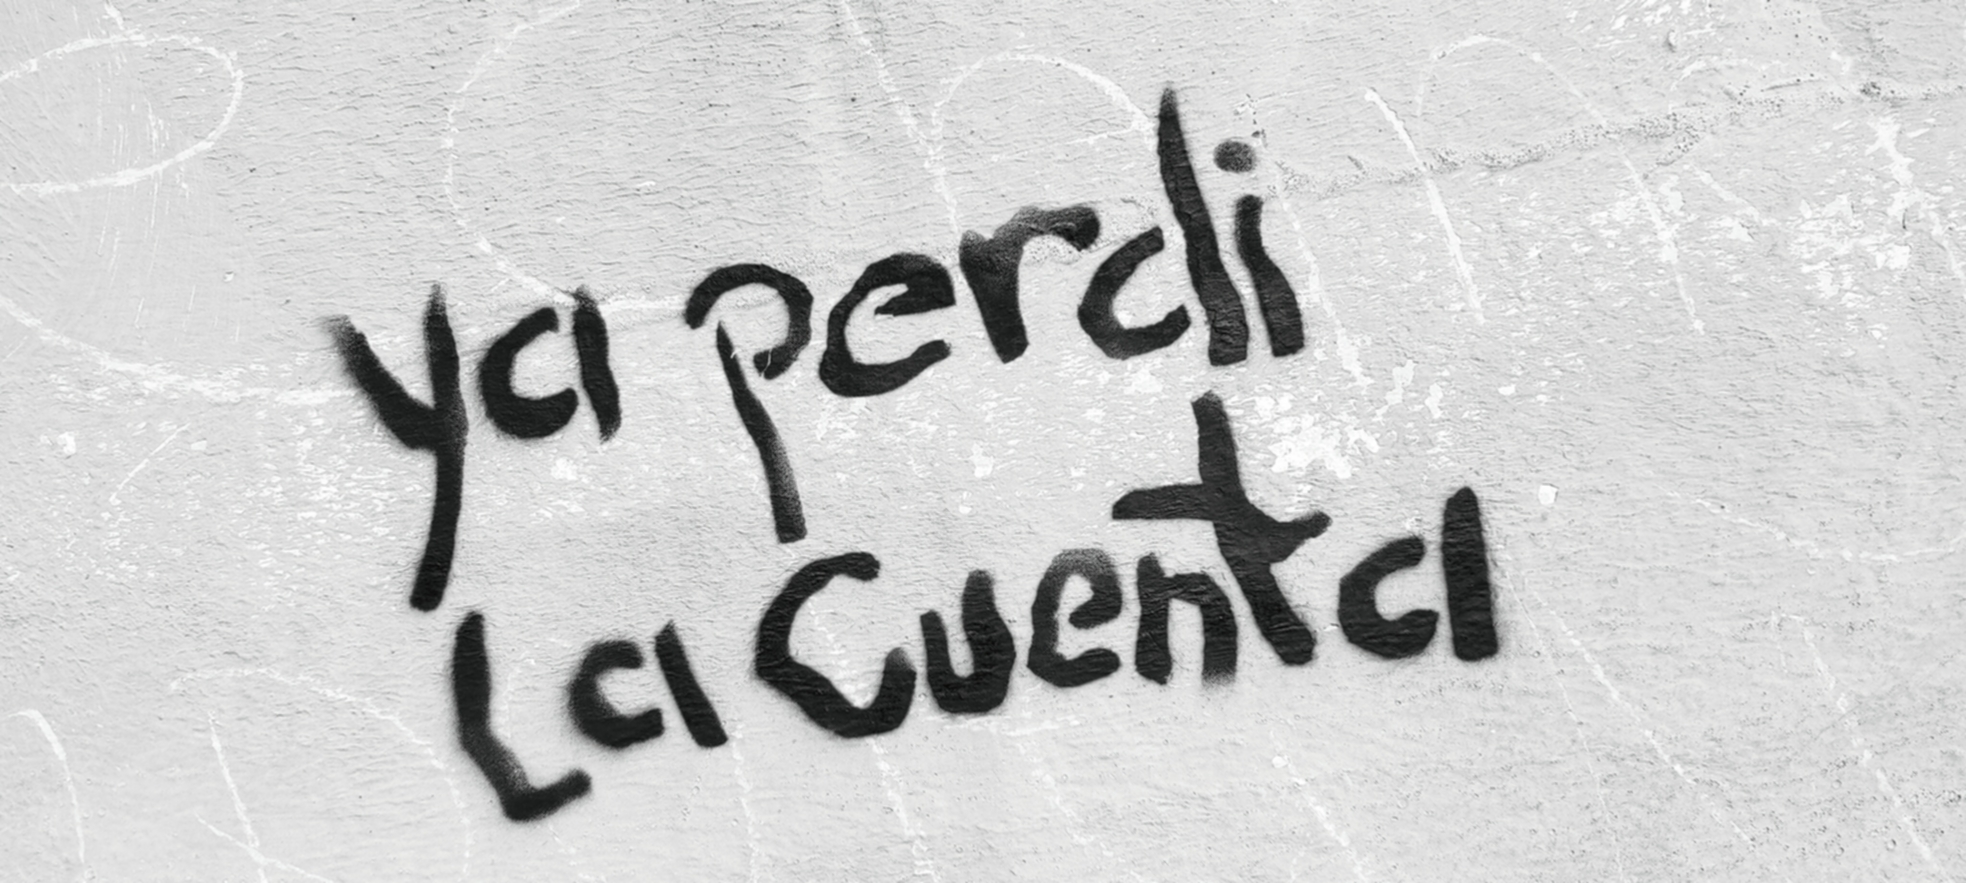 ya perdi
La Cuenta